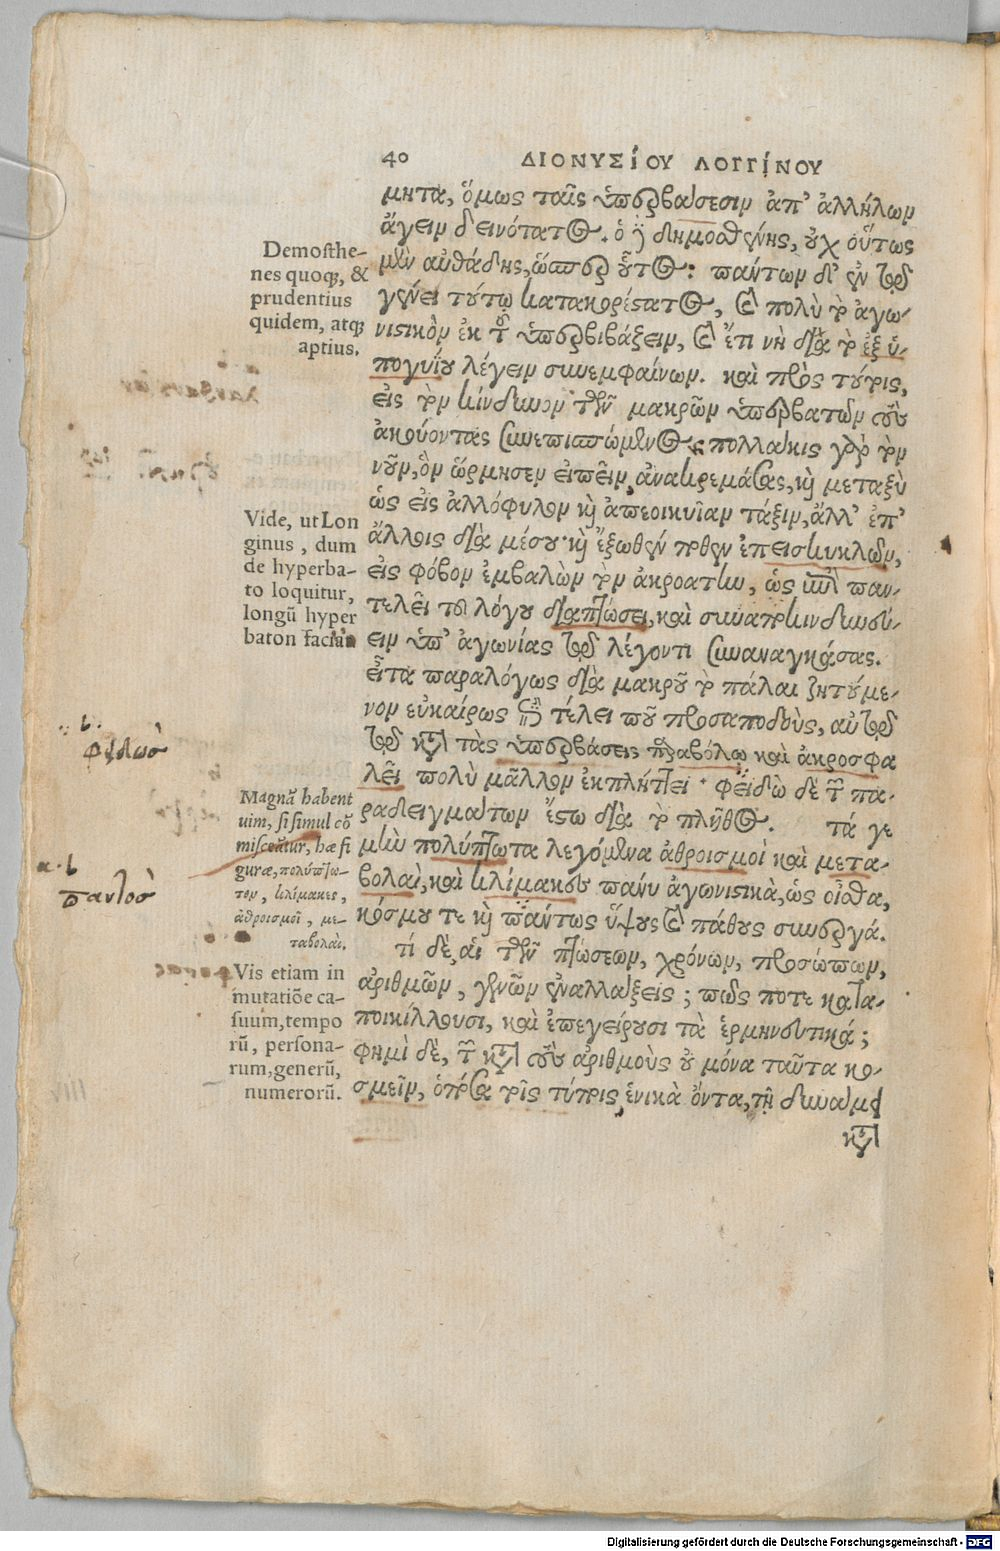 40 ΔΙΟΝΥΣΊΟΥ ΛΟΓΓΊΝΟΥ
μητα, ὅμως ταῖς ὑπερβάσεσιν ἀπ' ἀλλήλων
ἄγειν δεινότατος. ὁ δὲ δημοσθένης, οὐχ οὕτως
μὲν αὐθάδης, ὥσπερ οὗτος: πάντων δ' ἐν τῷ
γένει τούτῳ κατακορέστατος, καὶ πολὺ τὸ ἀγω-
νιστικὸν ἐκ τοῦ ὑπερβιβάζειν, καὶ ἔτι νὴ δία τὸ ἐξ ὑ-
πογυίου λέγειν συνεμφαίνων. καὶ πρὸς τούτοις,
εἰς τὸν κίνδυνον τῶν μακρῶν ὑπερβατῶν τοὺς
ἀκούοντας συνεπισπώμενος πολλάκις γὰρ τὸν
νοῦν, ὃν ὥρμησεν εἰπεῖν, ἀνακρεμάσας, καὶ μεταξὺ
ὡς εἰς ἀλλόφυλον καὶ ἀπεοικυῖαν τάξιν, ἄλλ' ἐπ'
ἄλλοις διὰ μέσου· καὶ ἔξωθέν ποθεν ἐπεισκυκλῶν,
εἰς φόβον ἐμβαλὼν τὸν ἀκροατὴν, ὡς ἐπὶ παν-
τελεῖ τοῦ λόγου διαπτώσει, καὶ συναποκινδυνεύ-
ειν ὑπ' ἀγωνίας τῷ λέγοντι συναναγκάσας.
εἶτα παραλόγως διὰ μακροῦ τὸ πάλαι ζητούμε-
νον εὐκαίρως ἐπὶ τέλει που προσαποδοὺς, αὐτῷ
τῷ κατὰ τὰς ὑπερβάσεις παραβόλῳ καὶ ἀκροσφα
λεῖ πολὺ μᾶλλον ἐκπλήττει· φειδὼ δὲ τῶν πα-
ραδειγμάτων ἔστω διὰ τὸ πλῆθος. τά γε
μὴν πολύπτωτα λεγόμενα ἀθροισμοὶ καὶ μετα-
βολαὶ, καὶ κλίμακες πάνυ ἀγωνιστικὰ, ὡς οἶσθα,
κόσμου τε καὶ πάντως ὕψους καὶ πάθους συνεργά.
τί δὲ, αἱ τῶν πτώσεων, χρόνων, προσώπων,
ἀριθμῶν, γενῶν ἐναλλάξεις; πῶς ποτε κατα-
ποικίλλουσι, καὶ ἐπεγείρουσι τὰ ἑρμηνευτικά;
φημὶ δὲ, τῶν κατὰ τοὺς ἀριθμοὺς οὐ μόνα ταῦτα κο-
σμεῖν, ὁπόσα τοῖς τύποις, ἑνικὰ ὄντα, τῇ δυνάμει
κατὰ
Demosthe-
nes quoq;, &
prudentius
quidem, atq;
aptius.
Vide, ut Lon
ginus, dum
de hyperba-
to loquitur,
longũ hyper
baton faciat
φειδωσ
Magnã habent
uim, si simul cõ
misceãtur, hæ fi
guræ, πολύπτω-
τον, κλίμακες,
ἀθροισμοὶ, με-
ταβολαὶ.
παντοσ
Vis etiam in
mutatiõe ca-
suum, tempo
rũ, persona-
rum, generũ,
numerorũ.
Digitalisierung gefördert durch die Deutsche Forschungsgemeinschaft - DFG